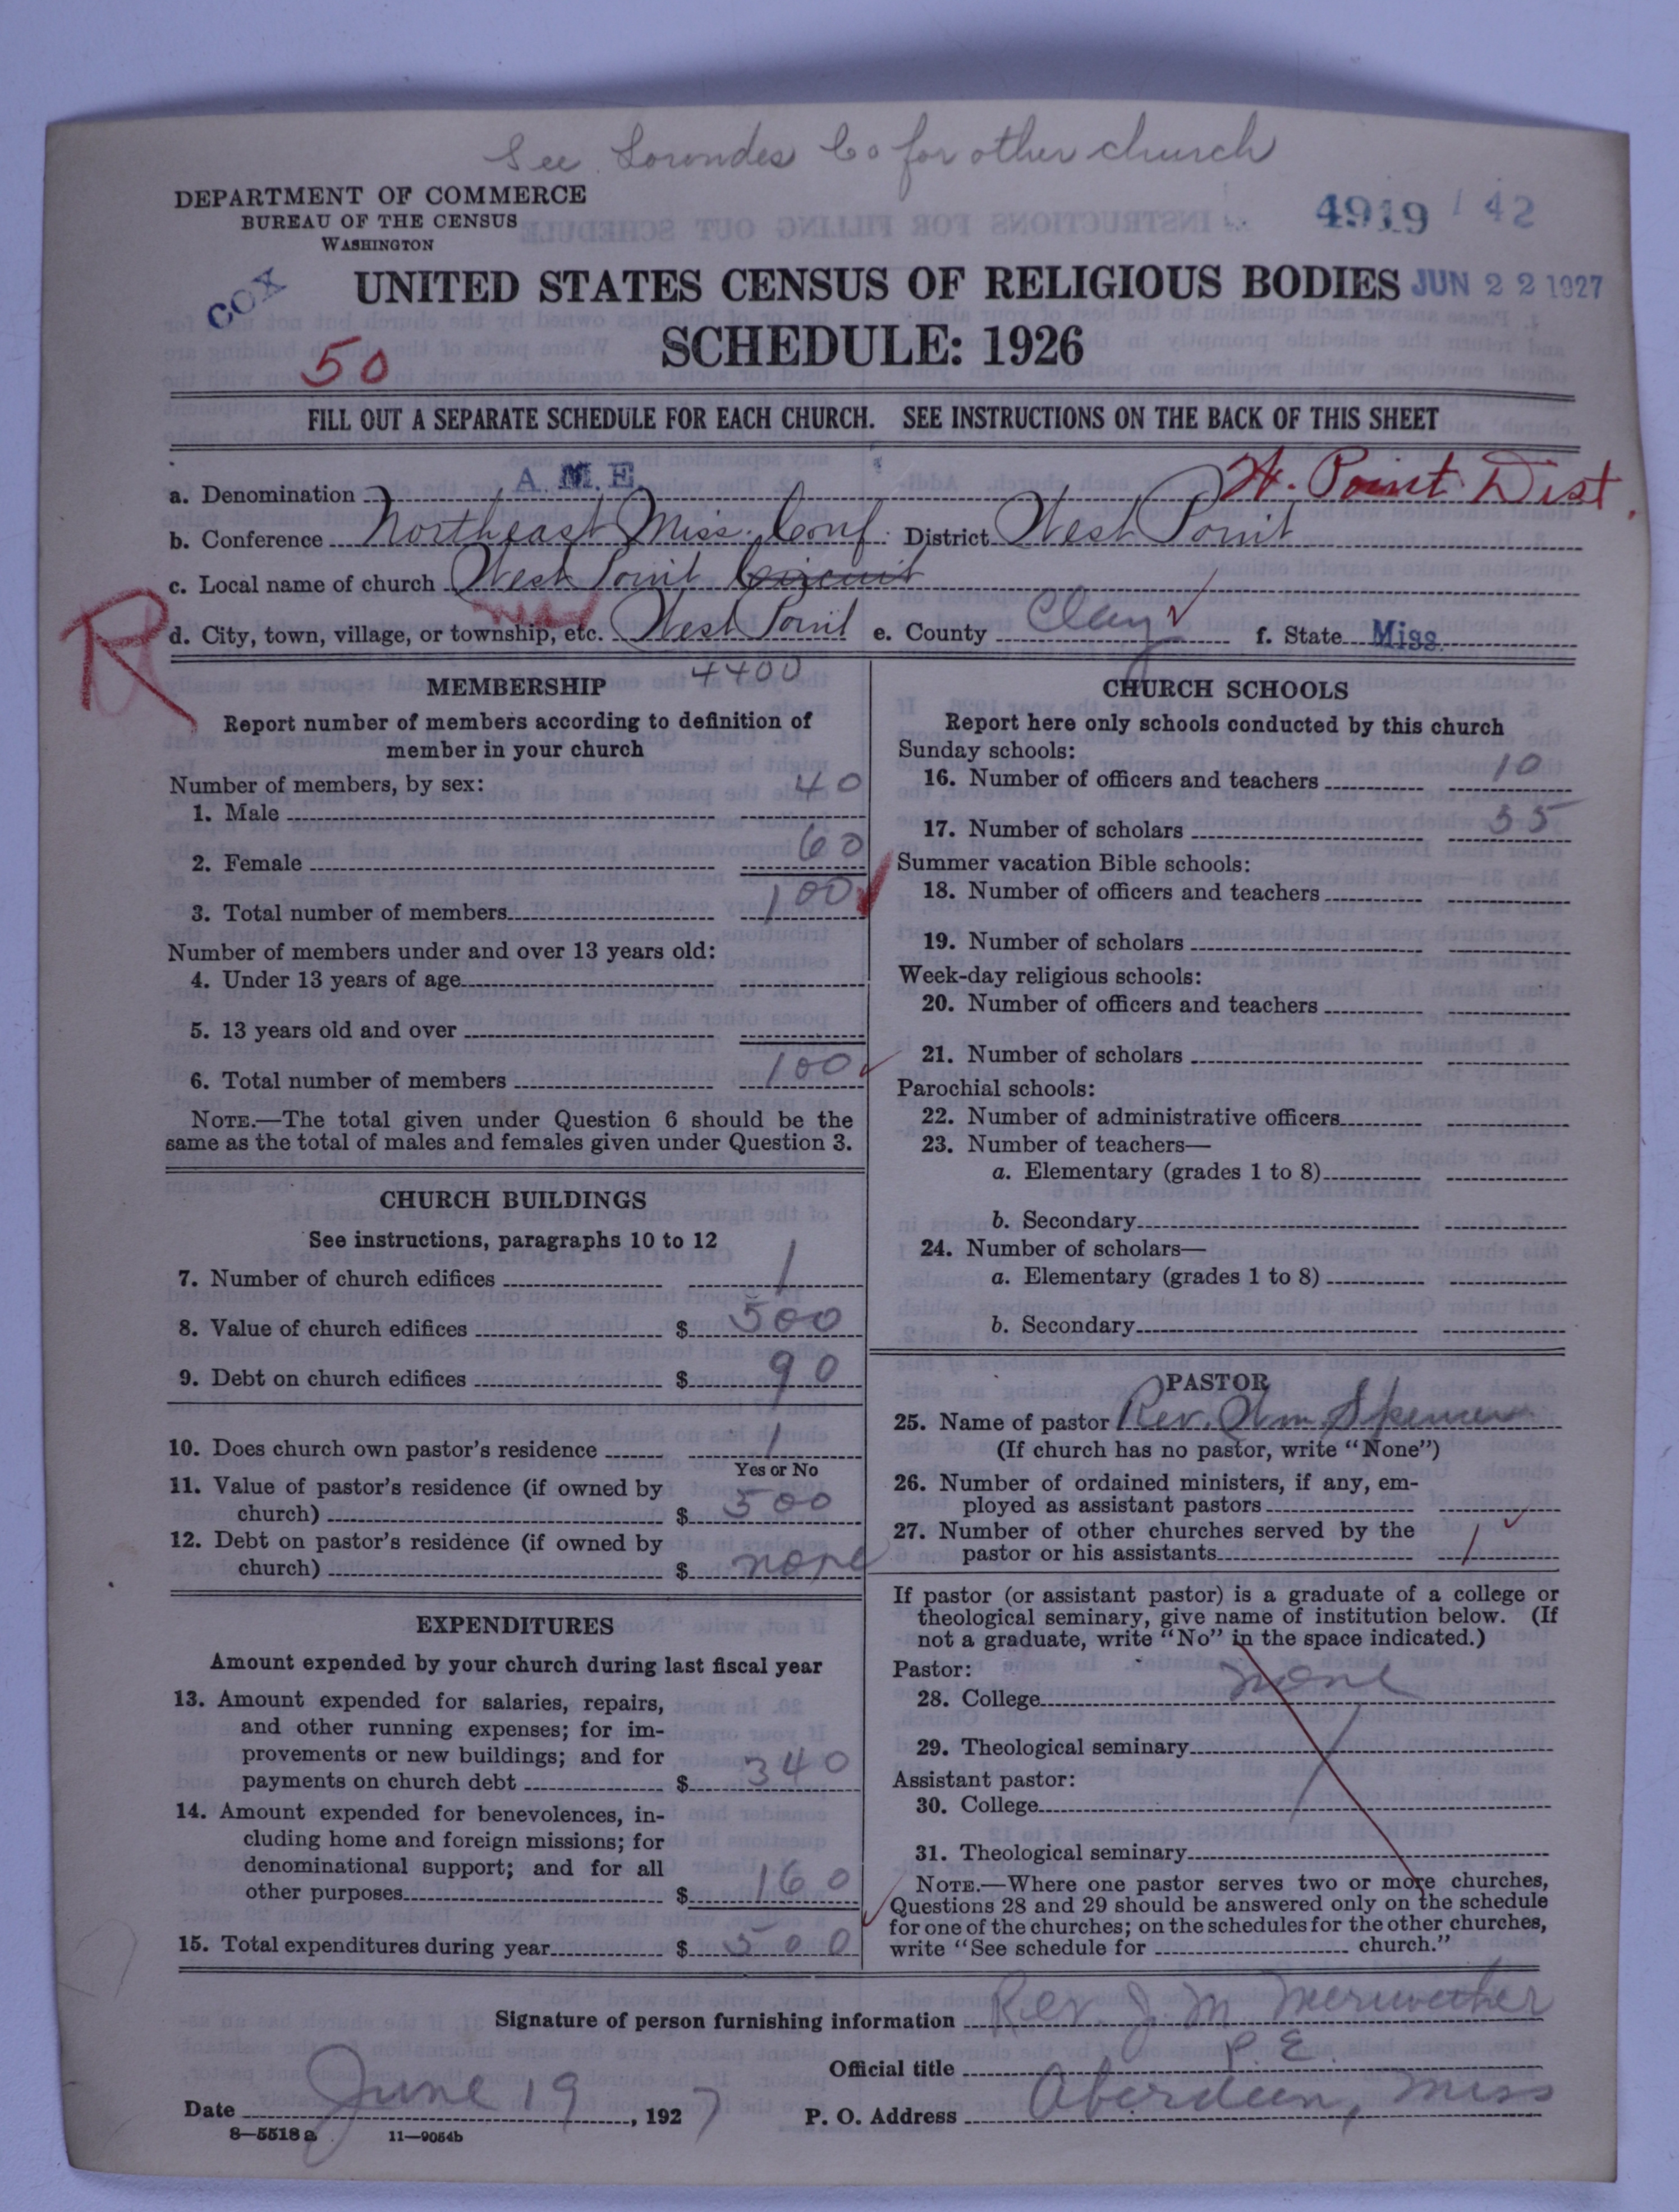 See Lowndes Co for other church
DEPARTMENT OF COMMERCE
BUREAU OF THE CENSUS
WASHINGTON
4919 142
COX
UNITED STATES CENSUS OF RELIGIOUS BODIES
JUN 22 1927
SCHEDULE: 1926
50
FILL OUT A SEPARATE SCHEDULE FOR EACH CHURCH. SEE INSTRUCTIONS ON THE BACK OF THIS SHEET
W. Point Dist.
a. Denomination A.M.E.
b. Conference Northeast Miss. Conf. District West Point
c. Local name of church West Point Circuit
R
d. City, town, village, or township, etc. West Point e. County Clay f. State Miss.
4400
MEMBERSHIP
Report number of members according to definition of
member in your church
Number of members, by sex:
1. Male 40
2. Female 60
3. Total number of members 100
Number of members under and over 13 years old:
4. Under 13 years of age
5. 13 years old and over
6. Total number of members 100
NOTE.—The total given under Question 6 should be the
same as the total of males and females given under Question 3.
CHURCH BUILDINGS
See instructions, paragraphs 10 to 12
7. Number of church edifices 1
8. Value of church edifices $ 500
9. Debt on church edifices $ 90
10. Does church own pastor's residence 1
Yes or No
11. Value of pastor's residence (if owned by
church) $ 500
12. Debt on pastor's residence (if owned by
church) $ none
EXPENDITURES
Amount expended by your church during last fiscal year
13. Amount expended for salaries, repairs,
and other running expenses; for im-
provements or new buildings; and for
payments on church debt $ 340
14. Amount expended for benevolences, in-
cluding home and foreign missions; for
denominational support; and for all
other purposes $ 160
15. Total expenditures during year $ 500
CHURCH SCHOOLS
Report here only schools conducted by this church
Sunday schools:
16. Number of officers and teachers 10
17. Number of scholars 35
Summer vacation Bible schools:
18. Number of officers and teachers
19. Number of scholars
Week-day religious schools:
20. Number of officers and teachers
21. Number of scholars
Parochial schools:
22. Number of administrative officers
23. Number of teachers—
a. Elementary (grades 1 to 8)
b. Secondary
24. Number of scholars—
a. Elementary (grades 1 to 8)
b. Secondary
PASTOR
25. Name of pastor Rev. Wm. Spencer
(If church has no pastor, write "None")
26. Number of ordained ministers, if any, em-
ployed as assistant pastors
27. Number of other churches served by the
pastor or his assistants 1
If pastor (or assistant pastor) is a graduate of a college or
theological seminary, give name of institution below. (If
not a graduate, write "No" in the space indicated.)
Pastor:
28. College none
29. Theological seminary
Assistant pastor:
30. College
31. Theological seminary
NOTE.—Where one pastor serves two or more churches,
Questions 28 and 29 should be answered only on the schedule
for one of the churches; on the schedules for the other churches,
write "See schedule for church."
Signature of person furnishing information Rev. J. M. Meriwether
Official title P. E.
Date June 19, 1927 P. O. Address Aberdeen, Miss
8—5518 a 11—9054b